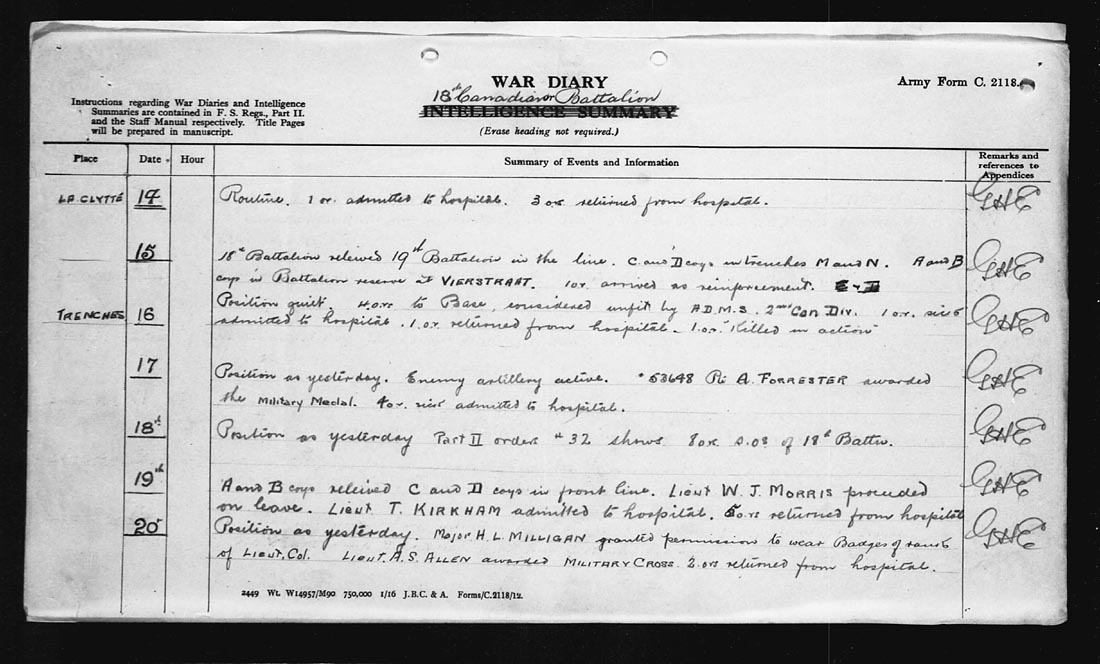 WAR DIARY
18th Canadian Battalion
or
INTELLIGENCE SUMMARY
(Erase heading not required.)
Army Form C. 2118.
Instructions regarding War Diaries and Intelligence
Summaries are contained in F. S. Regs., Part II.
and the Staff Manual respectively. Title Pages
will be prepared in manuscript.
Place Date Hour Summary of Events and Information Remarks and
references to
Appendices
LA CLYTTÉ 14 Routine. 1 or. admitted to hospital. 3 ors returned from hospital. GHE
15 18th Battalion releived 19th Battalion in the line. C and D coys in trenches M and N. A and B GHE
coys in Battalion reserve at VIERSTRAAT. 1 or. arrived as reinforcement.
TRENCHES 16 Position quiet. 4 o.rs to Base, considered unfit by A.D.M.S. 2nd Can Div. 1 o.r. sick GHE
admitted to hospital. 1 o.r. returned from hospital. 1. o.r. Killed in action
17 Position as yesterday. Enemy artillery active. 53648 Pte A. FORRESTER awarded GHE
the Military Medal. 4 o.r. sick admitted to hospital.
18th Position as yesterday Part II orders # 32 shows 8 o.rs S.O.S of 18th Battn. GHE
19th A and B coys releived C and D coys in front line. Lieut W. J. MORRIS proceeded GHE
on leave. Lieut T. KIRKHAM admitted to hospital. 5 o.rs returned from hospital
20 Position as yesterday. Major H. L. MILLIGAN granted permission to wear Badges of rank GHE
of Lieut. Col. Lieut. A. S. ALLEN awarded MILITARY CROSS. 2 o.rs returned from hospital.
2449 Wt. W14957/M90 750,000 1/16 J.B.C. & A. Forms/C.2118/12.